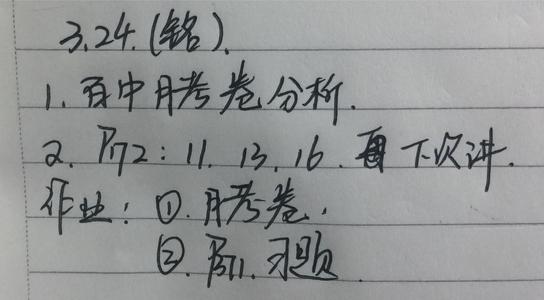 3.24.(铭).
1. 百中月考卷分析.
2. P172: 11. 13. 16. 下次讲.
作业: ①. 月考卷.
②. 习题